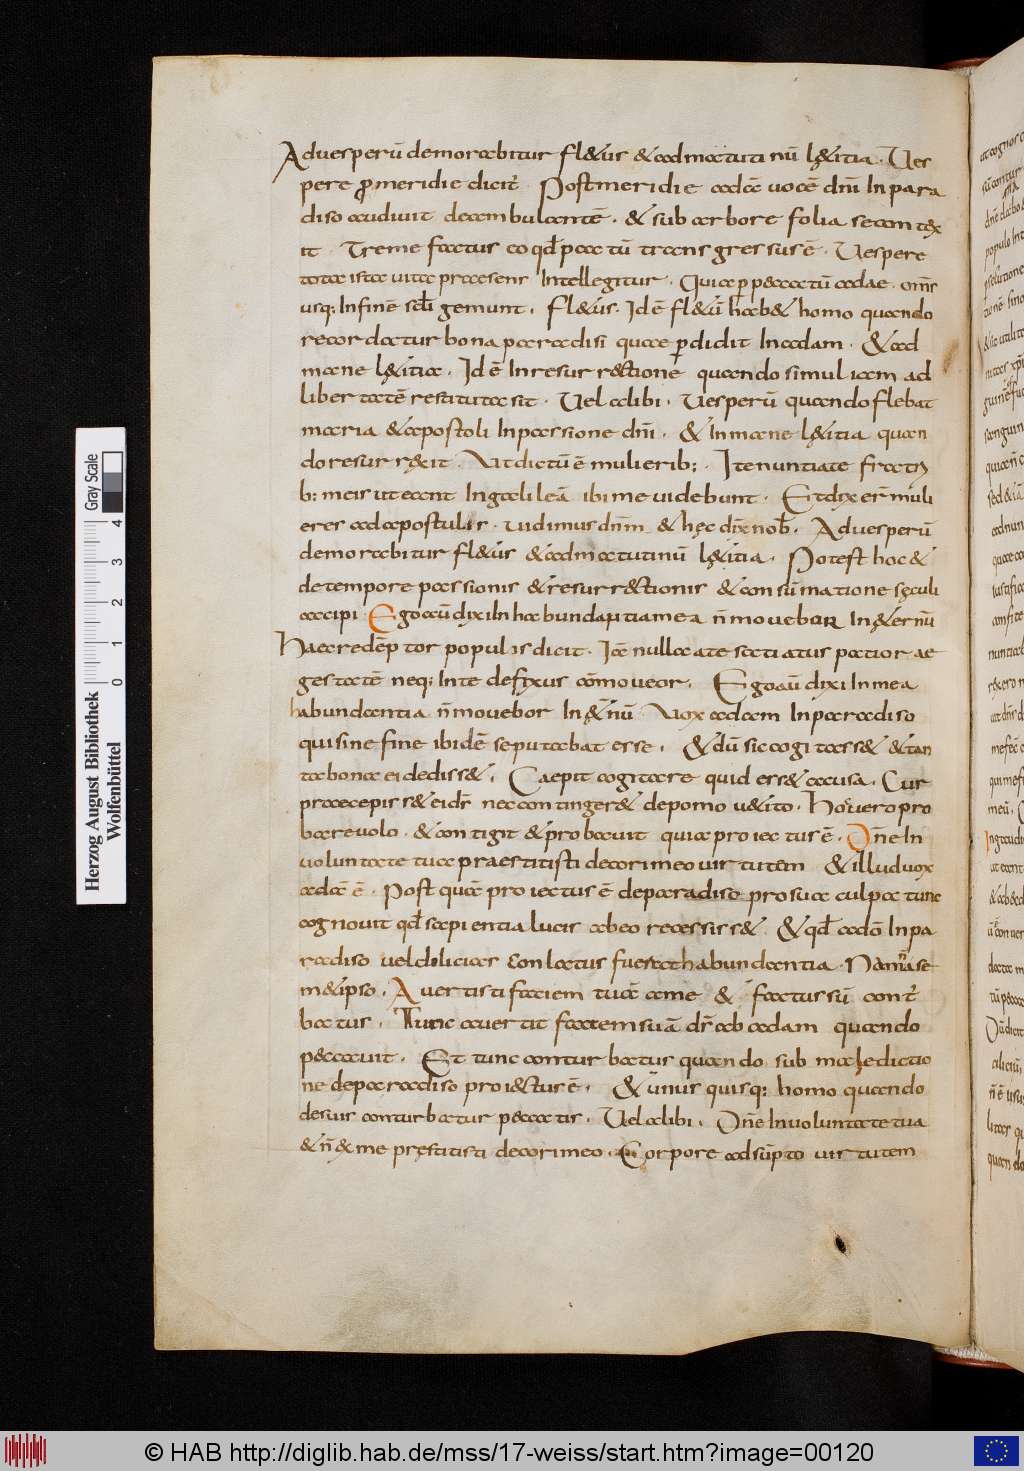 Aduesperū demorabitur fl&us &admatutinū l&itia · Ues
pere ꝓmeridie dicit̄ · Postmeridie adā uocē dn̄i Inpara
diso audiuit deambulantē · & sub arbore folia secontex
it · Treme factus eo qđ peactū transgressusē · Uespere
tota ista uita praesens Intellegitur · Quia ꝑp&catū adae · om̄s
usq; Infinē scłi gemunt · fl&us · Idē fl&ū hab& homo quando
recordatur bona paradisi quae ꝑdidit Inadam · &ad
mane l&itia · Idē Inresurr&tione quando simul iam ad
libertatē restituta sit · Uel alibi · Uesperū quando flebat
maria &apostoli Inpassione dn̄i · & Inmane l&itia quan
do resurr&it · Ut dictū ē mulierib; · Ite nuntiate fratri
b; meis ut eant Ingalileā ibi me uidebunt · Et dixer̄ muli
eres adapostulis · uidimus dn̄m & hęc dix̄ nob̄ · Aduesperū
demorabitur fl&us &admatutinū l&itia · Potest hoc &
de tempore passionis &resurr&tionis &consūmatione sęculi
accipi · Ego aū dixi In habundantia mea n̄ mouebor In&ernū
Haec redēptor populis dicit · Iā nulla te satiatus patior ae
gestatē neq; Inte defixus cōmouear · Ego aū dixi Inmea
habundantia n̄ mouebor In&n̄ū · Uox adam Inparadiso
qui sine fine ibidē se putabat esse · &dū sic cogitass& &tan
ta bona ei dediss& · Caepit cogitare quid ess& causa · Cur
praecepiss& ei dr̄ nec continger& de pomo u&ito · Hoc uero pro
bare uolo · &contigit &probauit quia proiectus ē · Dn̄e In
uoluntate tua praestitisti decori meo uirtutem &illud uox
adā ē · Post quā proiectus ē de paradiso pro sua culpa tunc
cognouit qđ sapientia lucis ab eo recessiss& · &qđ adā Inpa
radiso uel diliciae conlatus fuerat habundantia · Nam n̄ a se
m&ipso · Auertisti faciem tuā a me & factus sū cont̄
batus · Tunc auertit faciem suā dn̄s ab adam quando
p&cauit · Et tunc conturbatus quando sub maledictio
ne de paradiso proi&tus ē · & unus quisq; homo quando
desuis conturbatur p&catis · Uel alibi · Dn̄e Inuoluntate tua
&n̄ &x me pręstitisti decori meo · Corpore adsūpto uirtutem
Gray Scale
0 1 2 3 4
Herzog August Bibliothek
Wolfenbüttel
© HAB http://diglib.hab.de/mss/17-weiss/start.htm?image=00120